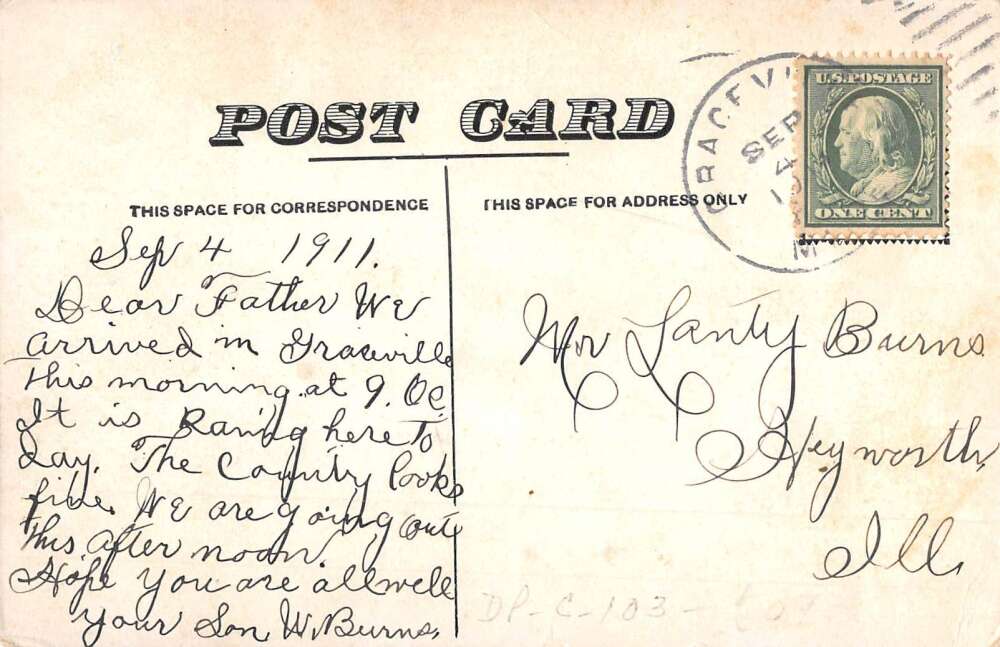 POST CARD
THIS SPACE FOR CORRESPONDENCE
THIS SPACE FOR ADDRESS ONLY
GRACEVI
SEP
4
M
U.S. POSTAGE
ONE CENT
Sep 4 1911.
Dear Father We
arrived in Graceville
this morning at 9. Oc.
It is Raning here To
day. The County Looks
fine. We are going oute
this after noon.
Hope you are allwell
your Son W. Burns.
Mr Lanty Burns
Heyworth,
Ill.
DP-C-103-